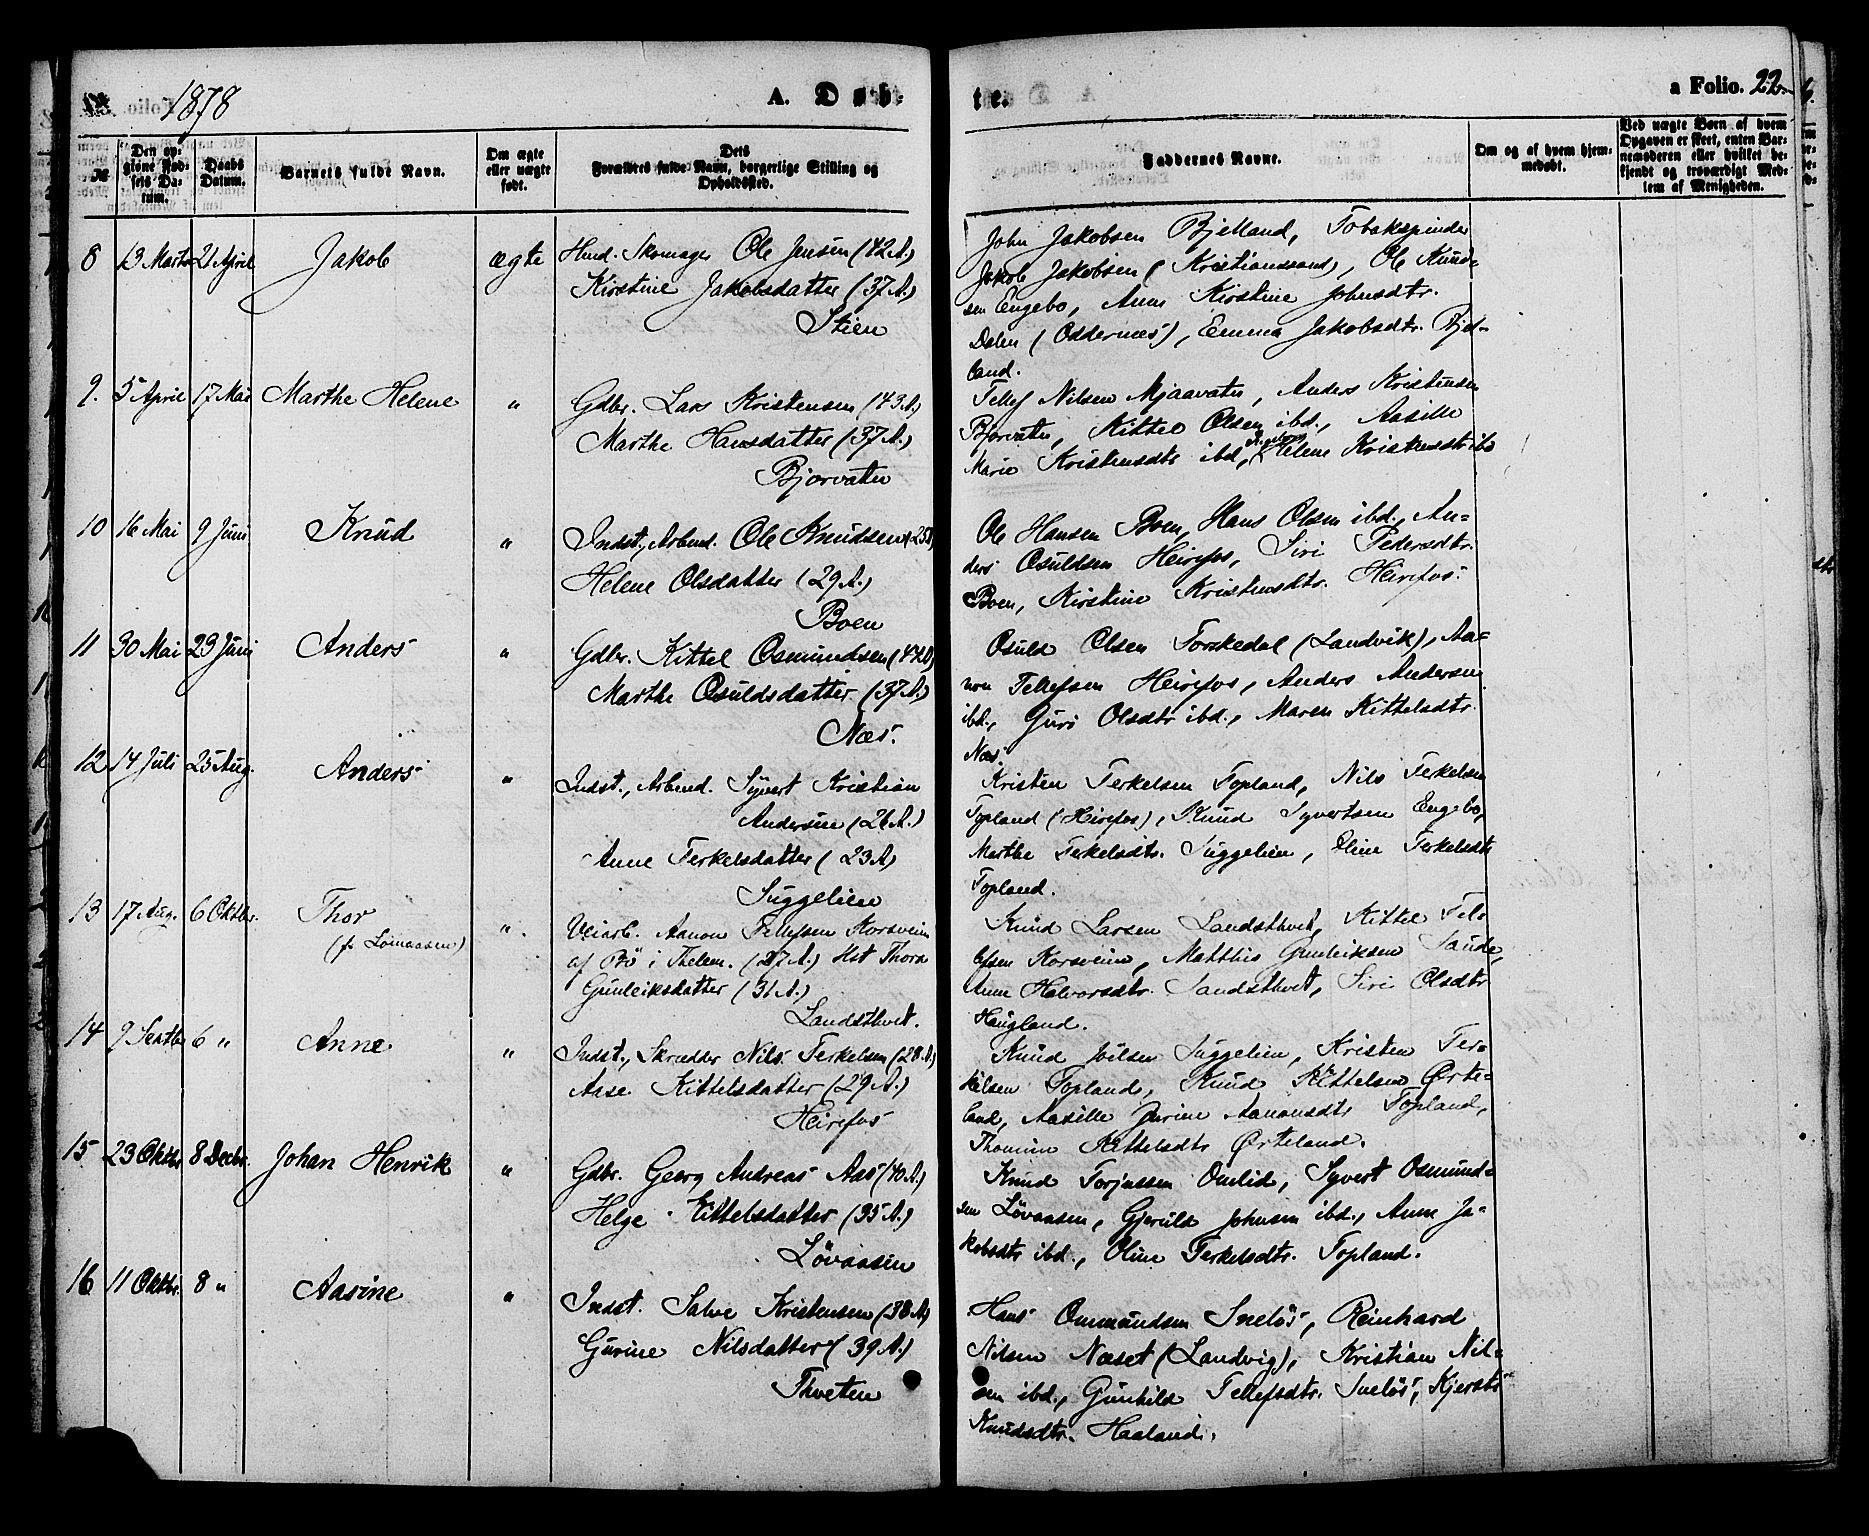 1878
A. Døb-
te.
a Folio. 22.
№
Den opgivne Fødsels Datum.
Daabs Datum.
Barnets fulde Navn.
Om ægte eller uægte født.
Dets Forældres fulde Navn, borgerlige Stilling og Opholdssted.
Faddernes Navne.
Om og af hvem hjemmedøbt.
Ved uægte Børn af hvem Opgaven er skeet, enten Barnemoderen eller hvilket bekjendt og troværdigt Medlem af Menigheden.
8 13 Marts 21 April Jakob ægte Husd. Skomager Ole Jensen (42 A.)
Kirstine Jakobsdatter (37 A.)
Stien
John Jakobsen Bjelland, Tobakspinder
Jakob Jakobsen (Kristianssand), Ole Knud-
sen Engebo, Anne Kirstine Johnsdtr.
Dalen (Oddernes), Emma Jakobsdtr. Bjel-
land.
9. 5 April 17 Mai Marthe Helene " Gdbr. Lars Kristensen (43 A.)
Marthe Hansdatter (37 A.)
Bjorvatn
Tellef Nilsen Mjaavatn, Anders Kristensen
Bjorvatn, Kittel Olsen ibd., Aasille
Marie Kristensdtr ibd, Helene Kristensdtr ibd
10 16 Mai 9 Juni Knud " Indst., Arbmd. Ole Knudsen (25 A.)
Helene Olsdatter (29 A.)
Boen
Ole Hansen Boen, Hans Olsen ibd., An-
ders Osuldsen Heirefos, Siri Pedersdtr.
Boen, Kirstine Kristensdtr. Heirefos.
11 30 Mai 23 Juni Anders " Gdbr. Kittel Osmundsen (44 A.)
Marthe Osuldsdatter (37 A.)
Næs.
Osuld Olsen Torskedal (Landvik), Aa-
non Tellefsen Heirefos, Anders Andersen
ibd., Guri Olsdtr ibd., Maren Kittelsdtr.
Næs.
12 14 Juli 25 Aug. Anders " Indst., Arbmd. Syvert Kristian
Andersen (26 A.)
Anne Terkelsdatter (23 A)
Suggelien
Kristen Terkelsen Topland, Nils Terkelsen
Topland (Heirefos), Knud Syvertsen Engebo,
Marthe Terkelsdtr. Suggelien, Oline Terkelsdtr
Topland.
13 17 Aug. 6 Oktbr. Thor ". Veiarb. Aanon Tellefsen Korsveien
(f. Løvaasen) af Bø i Thelem. (27 A.) Hst Thora
Gunleiksdatter (31 A.)
Landsthvet.
Knud Larsen Landsthvet, Kittel Tel-
lefsen Korsveien, Matthis Gunleiksen Sande,
Anne Halvorsdtr. Landsthvet, Siri Olsdtr
Haugland.
14 9 Septbr 6 " Anne " Indst., Skrædder Nils Terkelsen (28 A.)
Aase Kittelsdatter (29 A.)
Heirefos
Knud Joilsen Suggelien, Kristen Ter-
kelsen Topland, Knud Kittelsen Ørte-
land, Aasille Jurine Aanonsdtr Topland,
Thomine Kittelsdtr Ørteland.
15 23 Oktbr 8 Decbr. Johan Henrik " Gdbr. Georg Andreas Aas (40 A.)
Helge Kittelsdatter (35 A.)
Løvaasen
Knud Torjussen Omlid, Syvert Osmund-
sen Løvaasen, Gjeruld Johnsen ibd., Anne Ja-
kobsdtr ibd., Oline Terkelsdtr. Topland.
16 11 Oktbr. 8 " Aasine " Indst. Salve Kristensen (38 A)
Gurine Nilsdatter (39 A.)
Thveten
Hans Ommundsen Sneløs, Reinhard
Nilsen Næset (Landvig), Kristian Nil-
sen ibd., Gunhild Tellefsdtr. Sneløs, Kjersti
Knudsdtr. Haaland.